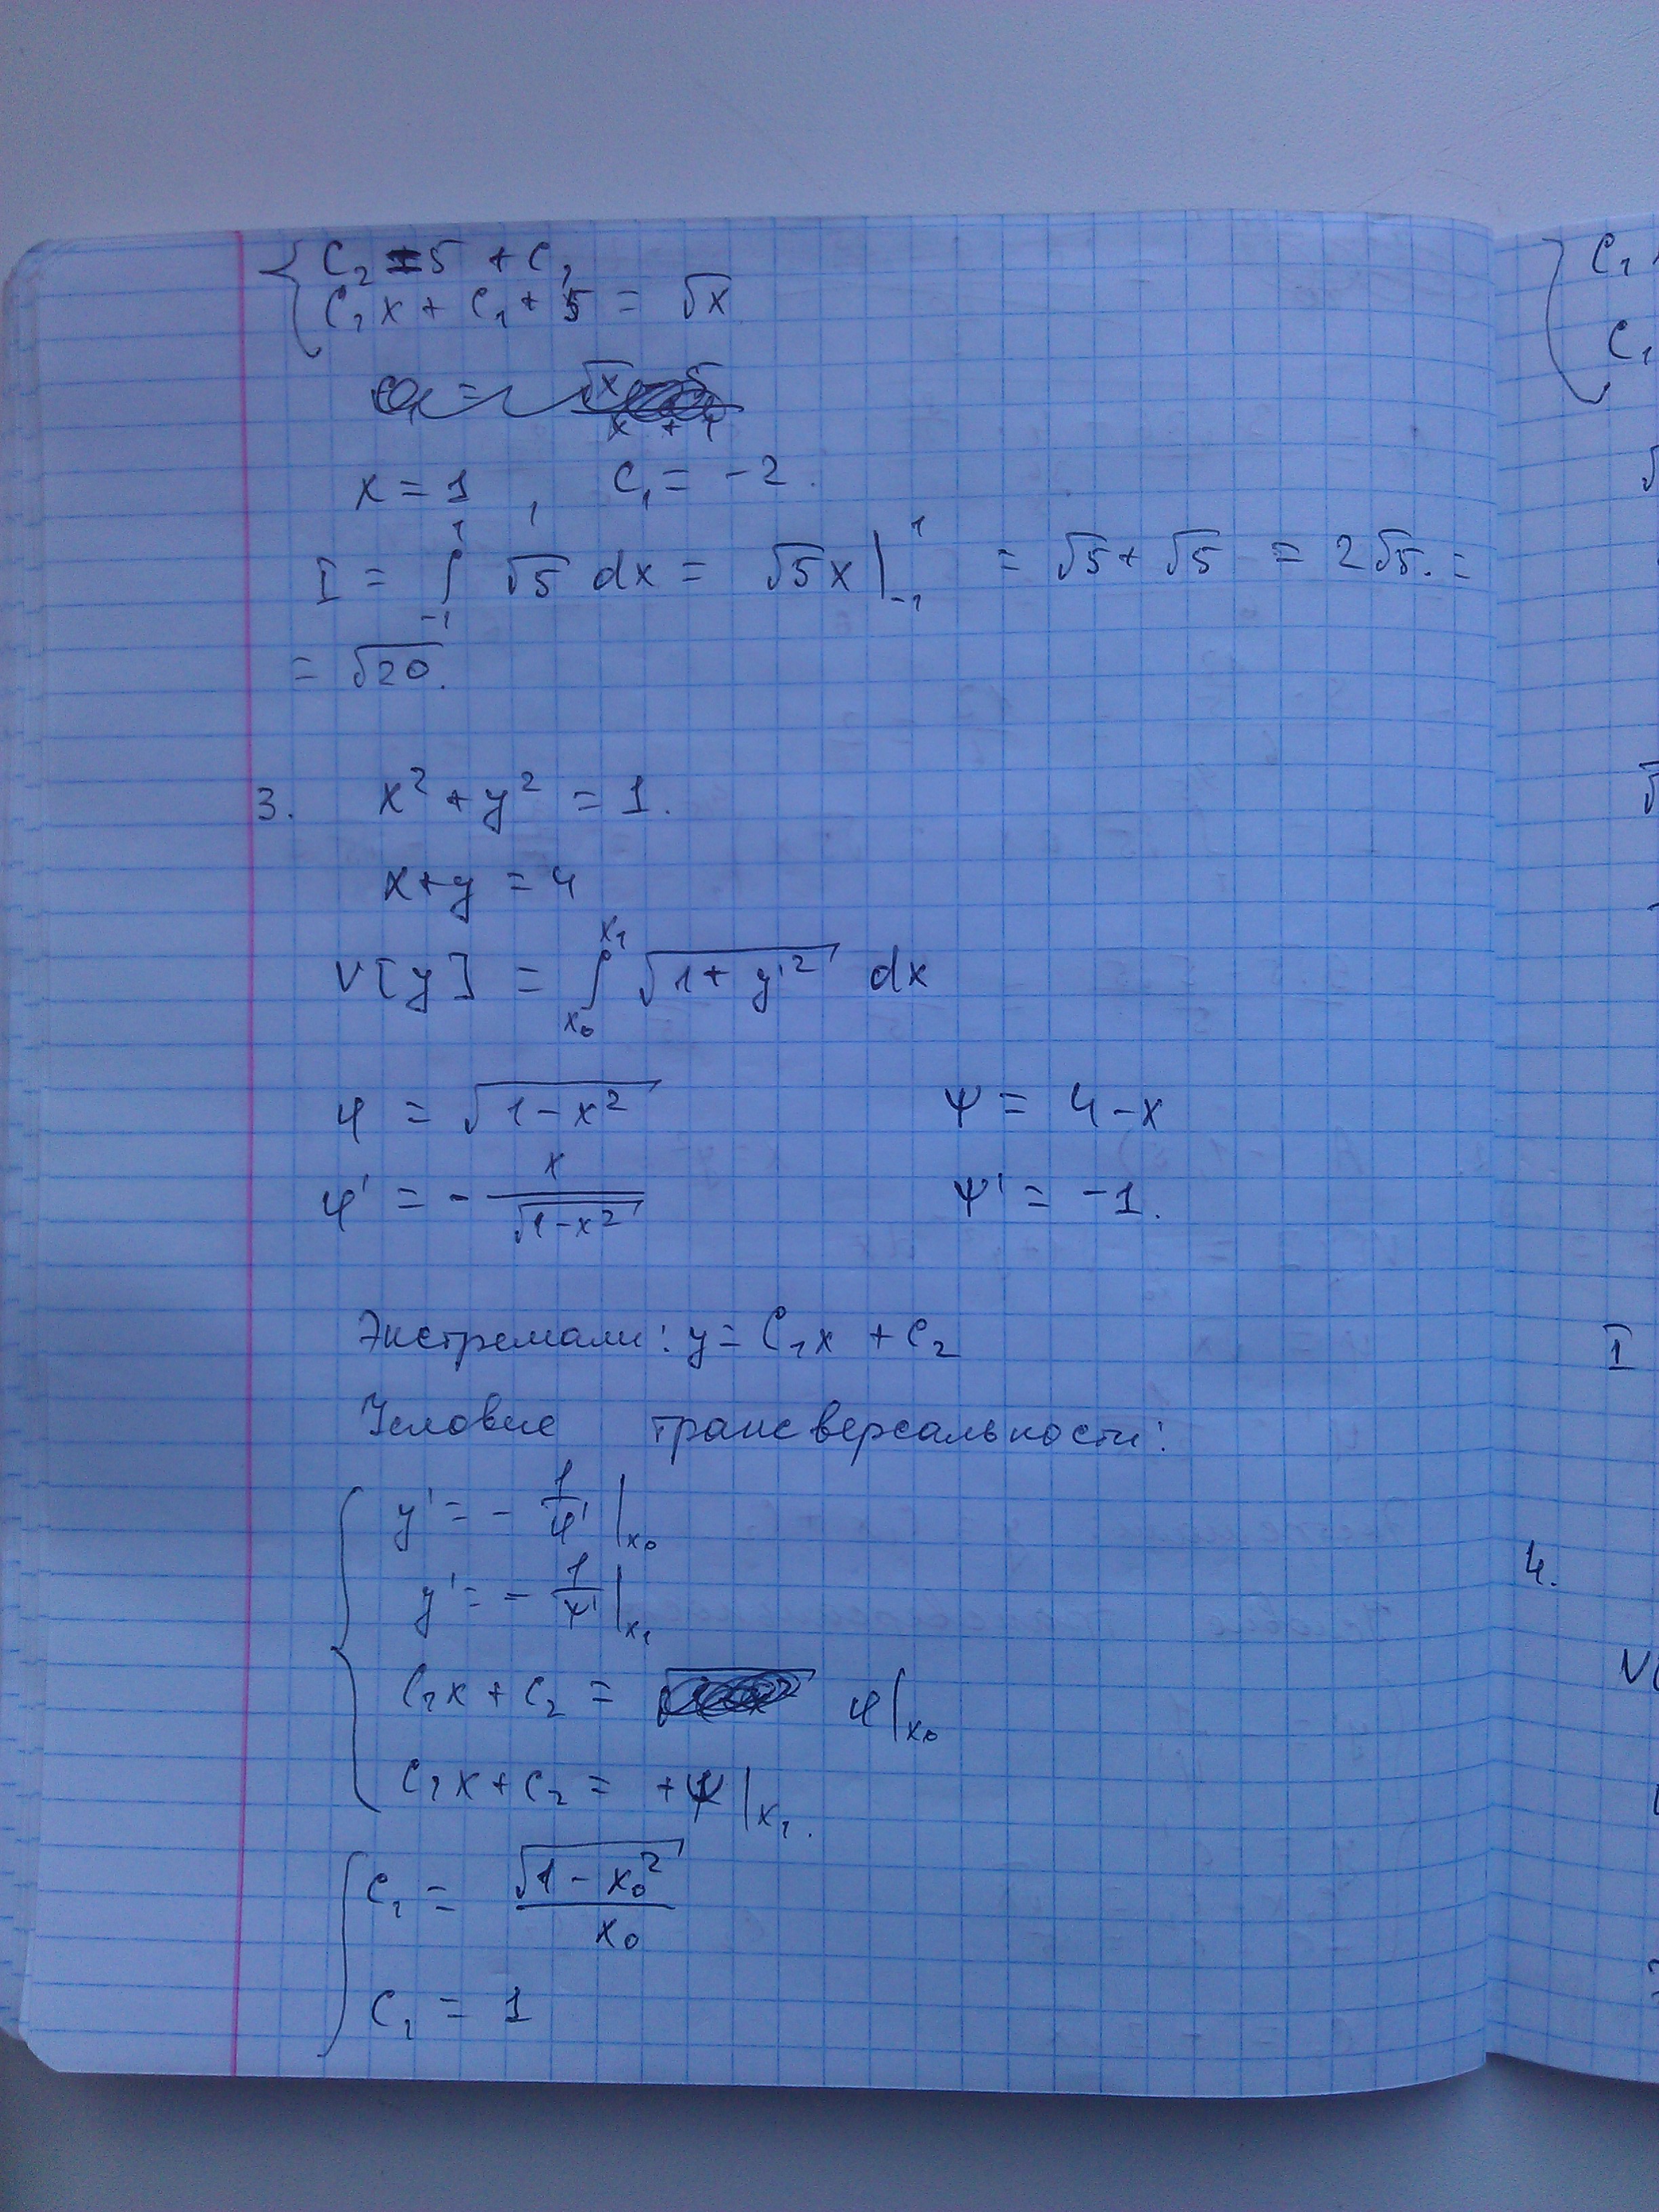 { C₂ = 5 + C₁
C₁x + C₁ + 5 = √x
x = 1 , C₁ = -2.
I = ∫₋₁¹ √5 dx = √5x |₋₁¹ = √5 + √5 = 2√5. =
= √20.
3. x² + y² = 1.
x + y = 4
V[y] = ∫ₓ₀ˣ¹ √(1 + y'²) dx
φ = √(1 - x²) ψ = 4 - x
φ' = - x/√(1 - x²) ψ' = -1.
Экстремали: y = C₁x + C₂
Условие трансверсальности:
{ y' = - 1/φ' |x₀
y' = - 1/ψ' |x₁
C₁x + C₂ = φ|x₀
C₁x + C₂ = + ψ|x₁.
{ C₁ = √(1 - x₀²)/x₀
C₁ = 1
C₁
C₁
I
4.